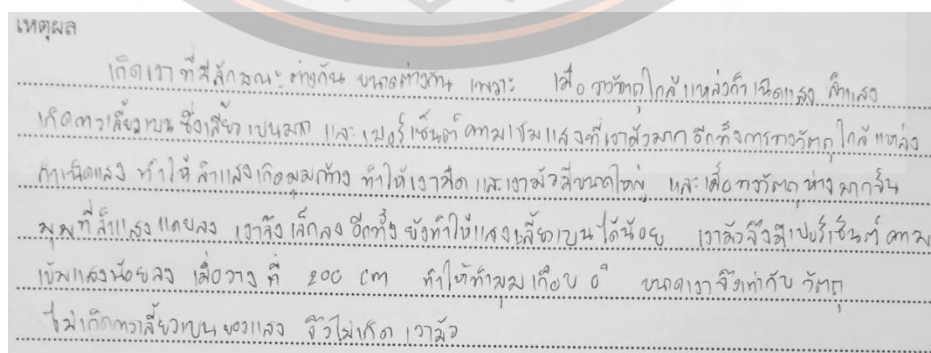 เหตุผล
เกิดเงาที่มีลักษณะต่างกัน ขนาดต่างกัน เพราะ เมื่อวางวัตถุใกล้แหล่งกำเนิดแสง ลำแสง
เกิดการเลี้ยวเบน ซึ่งเลี้ยวเบนมาก และเปอร์เซ็นต์ความเข้มแสงที่เงามัวมาก อีกทั้งการวางวัตถุใกล้แหล่ง
กำเนิดแสง ทำให้ลำแสงเกิดมุมกว้าง ทำให้เงามืดและเงามัวมีขนาดใหญ่ และเมื่อวางวัตถุห่างมากขึ้น
มุมที่ลำแสงแคบลง เงาจึงเล็กลง อีกทั้งยังทำให้แสงเลี้ยวเบนได้น้อย เงามัวจึงมีเปอร์เซ็นต์ความ
เข้มแสงน้อยลง เมื่อวางที่ 200 cm ทำให้ทำมุมเกือบ 0° ขนาดเงาจึงเท่ากับวัตถุ
ไม่เกิดการเลี้ยวเบนของแสง จึงไม่เกิดเงามัว